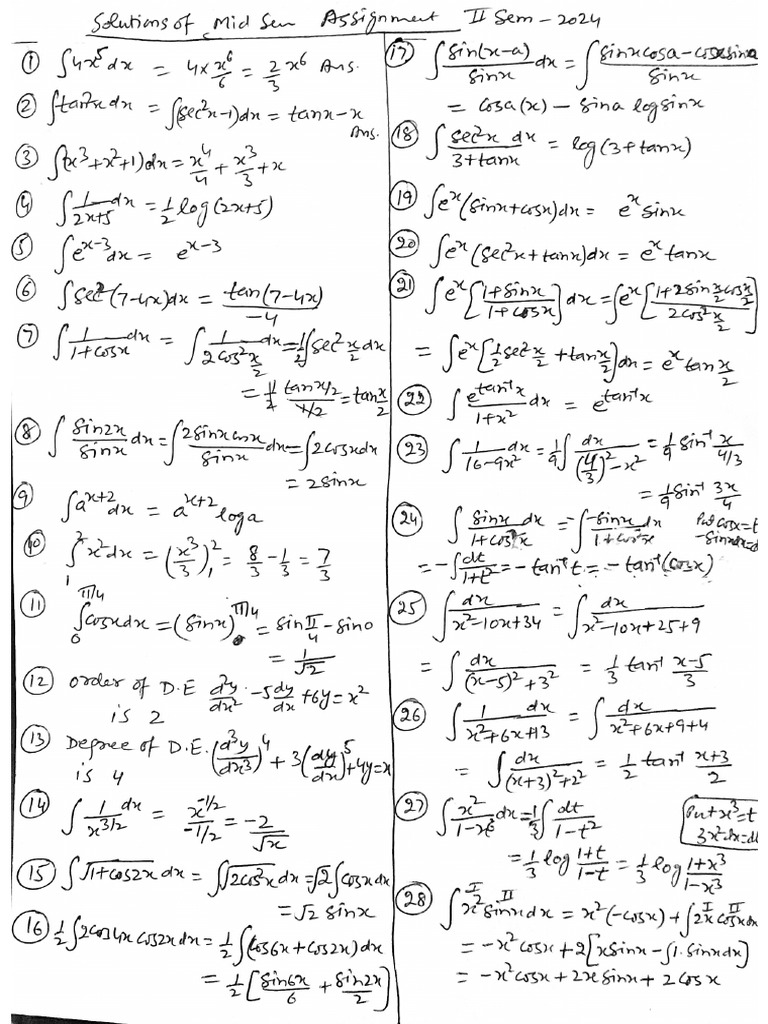 Solutions of Mid Sem Assignment II Sem - 2024
① ∫4x⁵dx = 4×x⁶/6 = 2/3 x⁶ Ans.
② ∫tan²x dx = ∫(sec²x-1)dx = tanx - x
Ans.
③ ∫(x³+x²+1)dx = x⁴/4 + x³/3 + x
④ ∫1/(2x+5) dx = 1/2 log(2x+5)
⑤ ∫e^(x-3) dx = e^(x-3)
⑥ ∫sec²(7-4x)dx = tan(7-4x)/-4
⑦ ∫1/(1+cosx) dx = ∫1/(2cos²x/2) dx = 1/2∫sec²x/2 dx
= 1/2 (tan x/2)/(1/2) = tan x/2
⑧ ∫sin2x/sinx dx = ∫2sinx cosx/sinx dx = ∫2cosxdx
= 2sinx
⑨ ∫a^(x+2) dx = a^(x+2) loga
⑩ ∫₁² x²dx = (x³/3)₁² = 8/3 - 1/3 = 7/3
⑪ ∫₀^(π/4) cosxdx = (sinx)₀^(π/4) = sin π/4 - sin0
= 1/√2
⑫ order of D.E d²y/dx² - 5dy/dx + 6y = x²
is 2
⑬ Degree of D.E. (d³y/dx³)⁴ + 3(dy/dx)⁵ + 4y = x
is 4
⑭ ∫1/x^(3/2) dx = x^(-1/2)/(-1/2) = -2/√x
⑮ ∫√(1+cos2x) dx = ∫√(2cos²x) dx = √2∫cosx dx
= √2 sinx
⑯ 1/2∫2cos4x cos2x dx = 1/2∫(cos6x + cos2x)dx
= 1/2[sin6x/6 + sin2x/2]
⑰ ∫sin(x-a)/sinx dx = ∫(sinxcosa - cosxsina)/sinx
= cosa(x) - sina logsinx
⑱ ∫sec²x dx/(3+tanx) = log(3+tanx)
⑲ ∫eˣ(sinx+cosx)dx = eˣ sinx
⑳ ∫eˣ(sec²x+tanx)dx = eˣ tanx
㉑ ∫eˣ[(1+sinx)/(1+cosx)]dx = ∫eˣ[(1+2sin x/2 cos x/2)/(2cos²x/2)]
= ∫eˣ[1/2 sec²x/2 + tan x/2]dx = eˣ tan x/2
㉒ ∫e^(tan⁻¹x)/(1+x²) dx = e^(tan⁻¹x)
㉓ ∫1/(16-9x²) dx = 1/9∫dx/((4/3)²-x²) = 1/9 sin⁻¹ x/(4/3)
= 1/9 sin⁻¹ 3x/4
㉔ ∫sinx dx/(1+cos²x) = -∫-sinx dx/(1+cos²x) Put cosx=t
-sinxdx=d
= -∫dt/(1+t²) = -tan⁻¹t = -tan⁻¹(cosx)
㉕ ∫dx/(x²-10x+34) = ∫dx/(x²-10x+25+9)
= ∫dx/((x-5)²+3²) = 1/3 tan⁻¹ (x-5)/3
㉖ ∫1 dx/(x²+6x+13) = ∫dx/(x²+6x+9+4)
= ∫dx/((x+3)²+2²) = 1/2 tan⁻¹ (x+3)/2
㉗ ∫x²/(1-x⁶) dx = 1/3∫dt/(1-t²) Put x³=t
3x²dx=dt
= 1/3 log (1+t)/(1-t) = 1/3 log (1+x³)/(1-x³)
㉘ ∫x² sinx dx = x²(-cosx) + ∫2x cosxdx
I II I II
= -x²cosx + 2[xsinx - ∫1.sinxdx]
= -x²cosx + 2xsinx + 2cosx